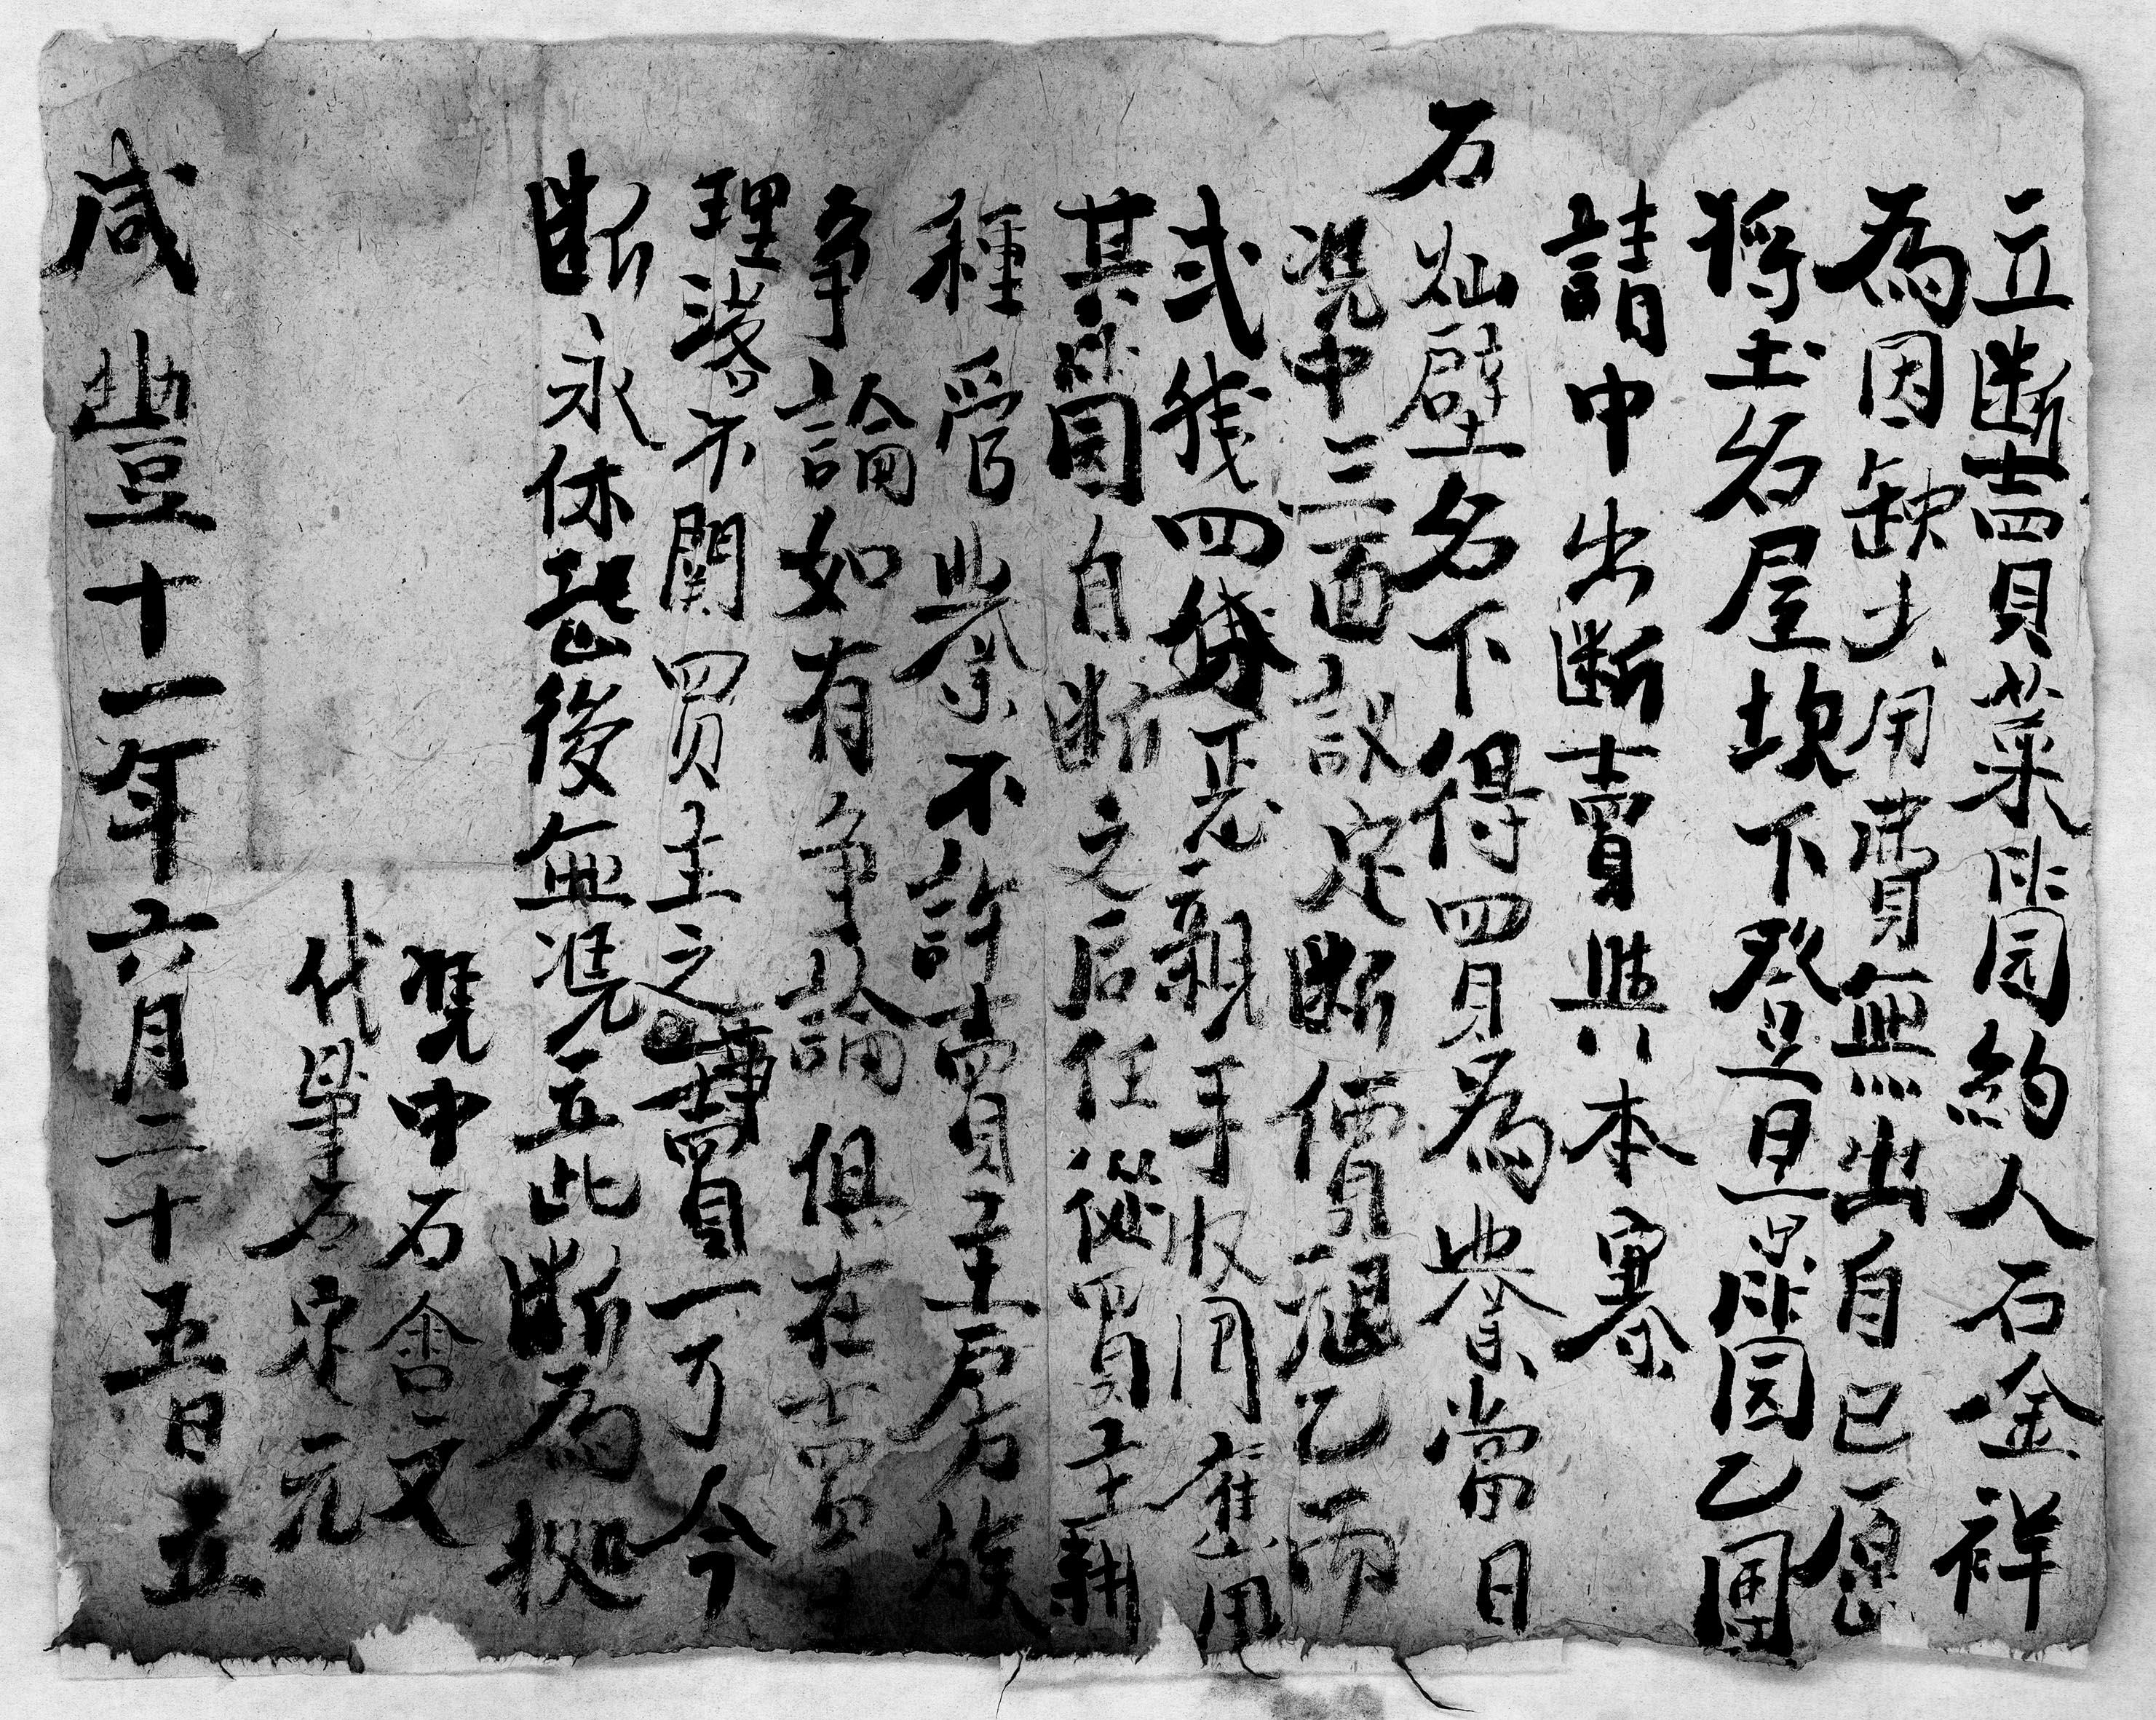 立斷賣菜园約人石金祥
為因缺少用費無出自己愿
將土名屋坎下登旦园乙團
請中出斷賣與本寨
石灿壁名下得買為業當日
凭中三面議定斷價艮乙両
弍錢四分正親手收用應用
其园自斷之后任從買主耕
種管業不許賣主房族
爭論如有爭論俱在賣
理落不關買主之事一了今
斷永休恐後無凴立此斷為抝
凴中石含文
代筆石定元
咸豐十一年六月二十五日立